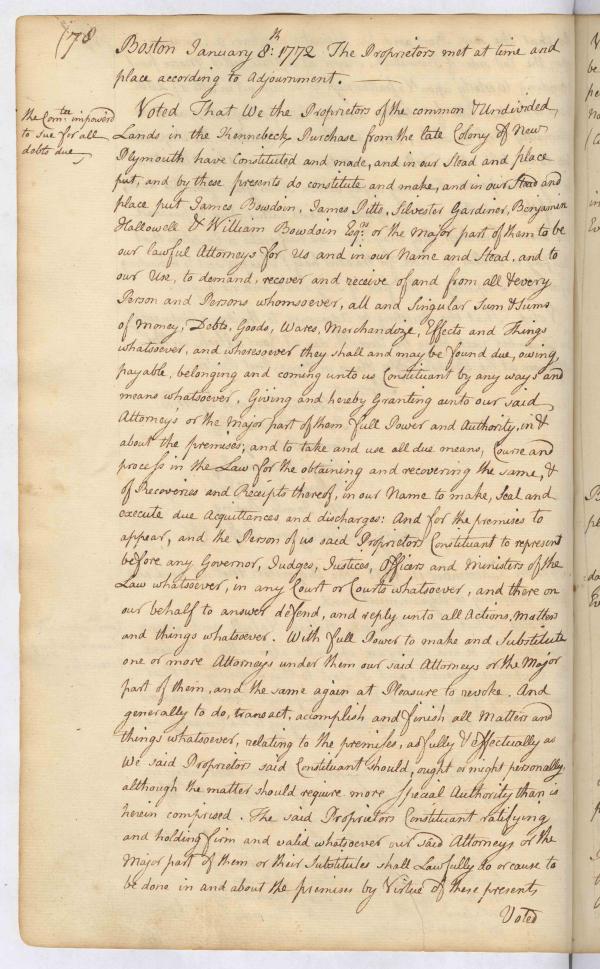 178
Boston January 8:th 1772 The Proprietors met at time and
place according to Adjournment.
the Com:tee impower'd
to sue for all
debts due
Voted That We the Proprietors of the common & Undivided
Lands in the Kennebeck Purchase from the late Colony of New
Plymouth have Constituted and made, and in our Stead and place
put, and by these presents do constitute and make, and in our Stead and
place put James Bowdoin, James Pitts, Silvester Gardiner, Benjamin
Hallowell & William Bowdoin Esqrs or the Major part of them to be
our lawful Attorneys for Us and in our Name and Stead, and to
our Use, to demand, recover and receive of and from all & every
Person and Persons whomsoever, all and Singular Sum & Sums
of Money, Debts, Goods, Wares, Merchandize, Effects and Things
whatsoever, and wheresoever they shall and may be found due, owing,
payable, belonging and coming unto us Constituant by any ways and
means whatsoever, Giving and hereby Granting unto our said
Attorney's or the Major part of them full Power and Authority, in &
about the premises; and to take and use all due means, Course and
process in the Law for the obtaining and recovering the same, &
of Recoveries and Receipts thereof, in our Name to make, Seal and
execute due Acquittances and discharges: And for the premises to
appear, and the Person of us said Proprietors Constituant to represent
before any Governor, Judges, Justices, Officers and Ministers of the
Law whatsoever, in any Court or Courts whatsoever, and there on
our behalf to answer defend, and reply unto all Actions, Matters
and things whatsoever. With full Power to make and Substitute
one or more Attorney's under them our said Attorneys or the Major
part of them, and the same again at Pleasure to revoke. And
generally to do, transact, acomplish and finish all Matters and
things whatsoever, relating to the premises, as fully & effectually as
We said Proprietors said Constituant should, ought or might personally
although the matter should require more special Authority than is
herein comprised. The said Proprietors Constituant ratifying
and holding firm and valid whatsoever our said Attorneys or the
Major part of them or their Substitutes shall Lawfully do or cause to
be done in and about the premises by Virtue of these presents
Voted